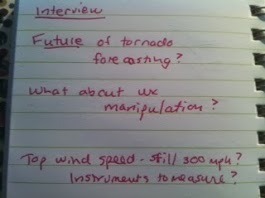 Interview
Future of tornado
forecasting?
What about wx
manipulation?
Top wind speed - still 300 mph?
Instruments to measure?